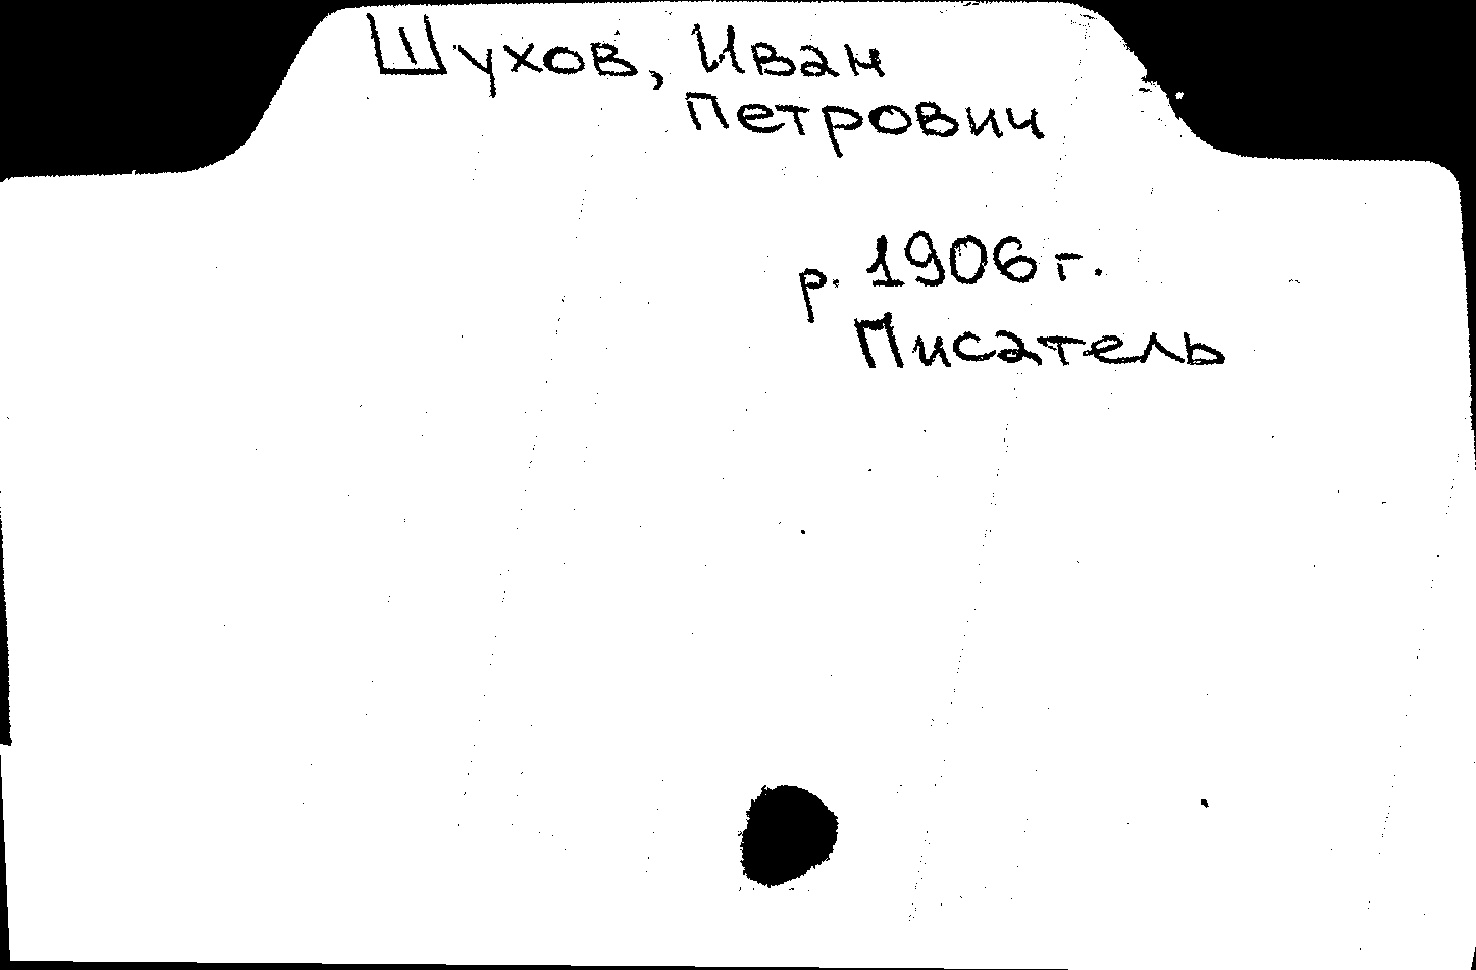 Шухов, Иван
Петрович
р. 1906 г.
Писатель